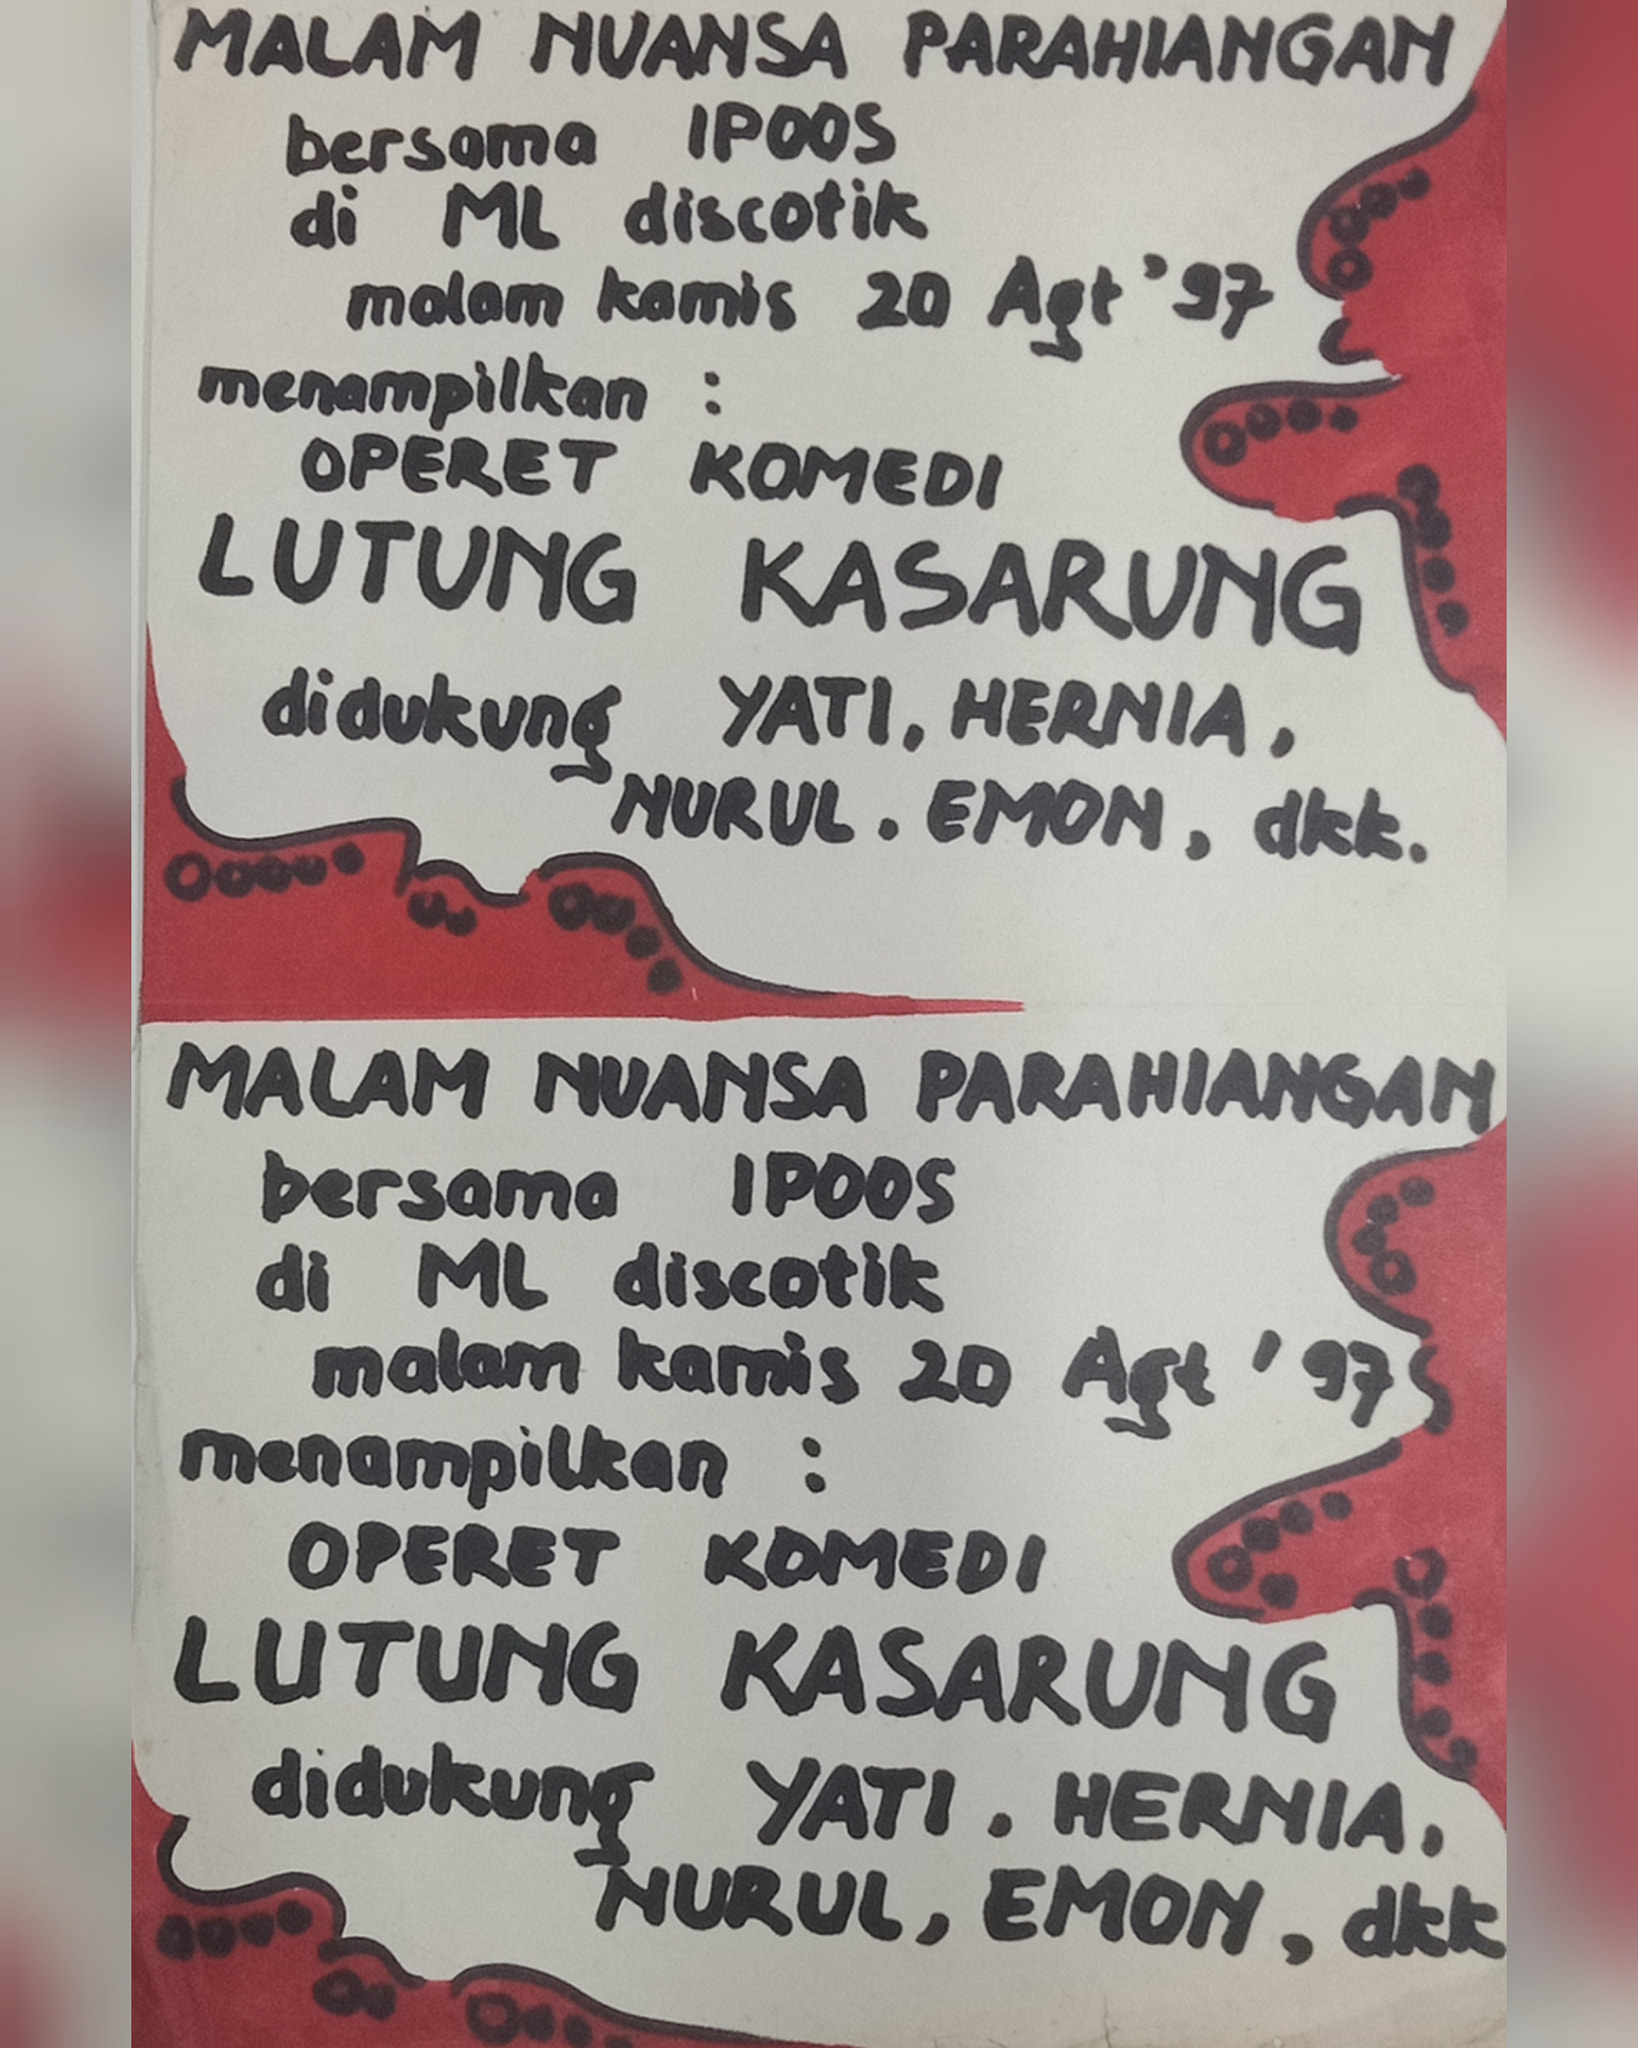 MALAM NUANSA PARAHIANGAN
bersama IPOOS
di ML discotik
malam kamis 20 Agt '97
menampilkan :
OPERET KOMEDI
LUTUNG KASARUNG
didukung YATI, HERNIA,
NURUL. EMON, dkk.
MALAM NUANSA PARAHIANGAN
bersama IPOOS
di ML discotik
malam kamis 20 Agt '97
menampilkan :
OPERET KOMEDI
LUTUNG KASARUNG
didukung YATI. HERNIA,
NURUL, EMON, dkk